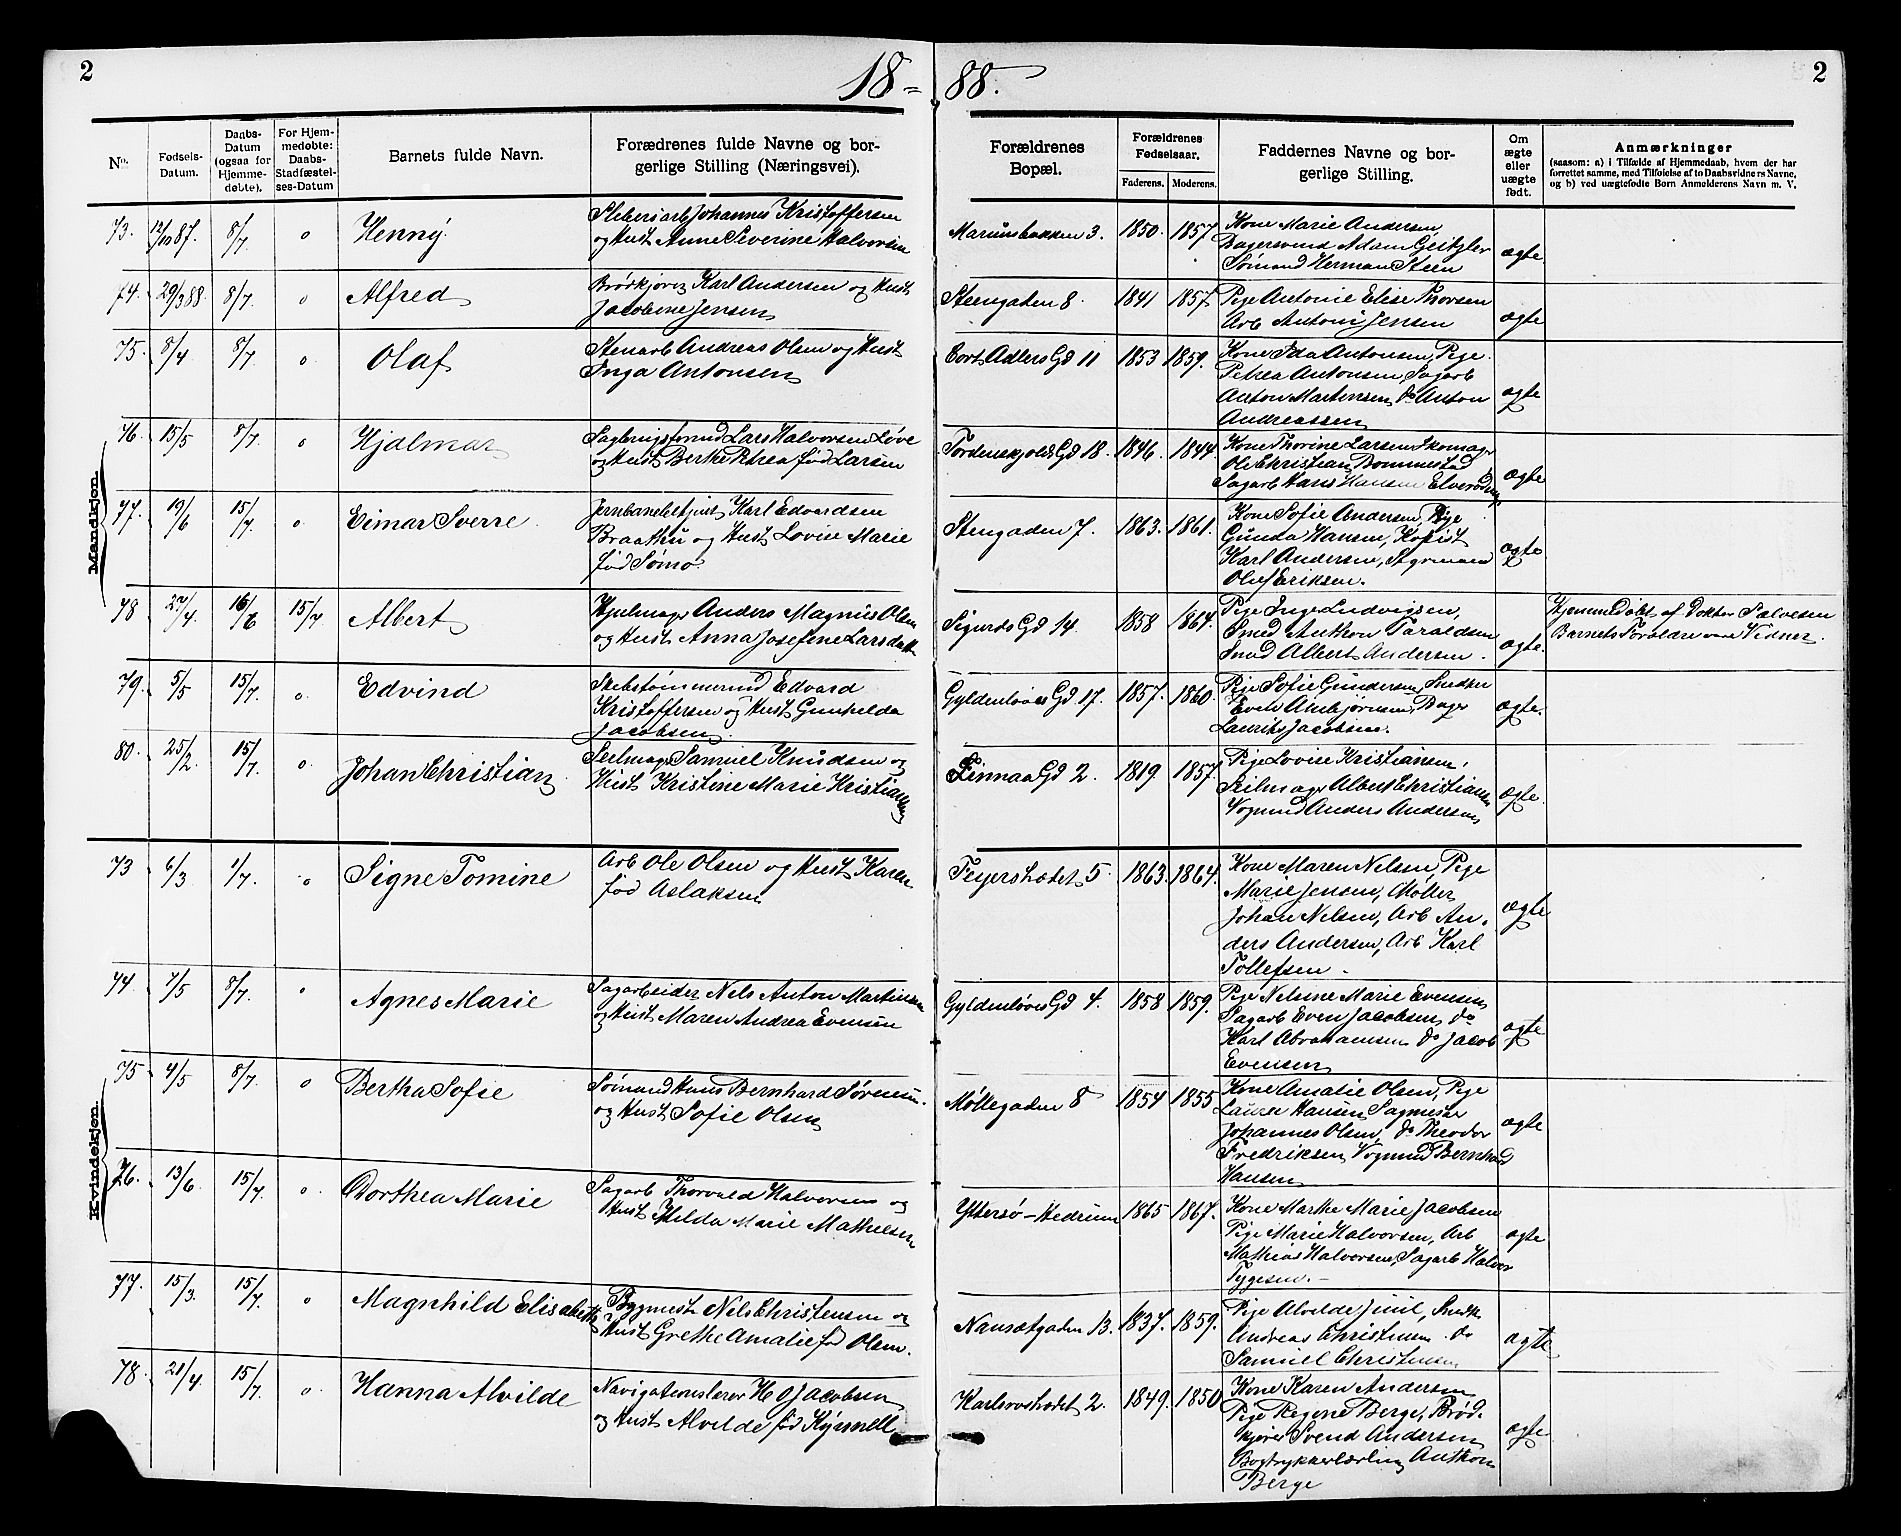 2
18 = 88.
2
No.
Fødsels-
Datum.
Daabs-
Datum
(ogsaa for
Hjemme-
døbte).
For Hjem-
medøbte:
Daabs-
Stadfæstel-
ses-Datum
Barnets fulde Navn.
Forædrenes fulde Navne og bor-
gerlige Stilling (Næringsvei).
Forældrenes
Bopæl.
Forældrenes
Fødselsaar.
Faderens. Moderens.
Faddernes Navne og bor-
gerlige Stilling.
Om
ægte
eller
uægte
født.
Anmærkninger
(saasom: a) i Tilfælde af Hjemmedaab, hvem der har
forrettet samme, med Tilføielse af to Daabsvidners Navne,
og b) ved uægtefødte Børn Anmelderens Navn m. V.
Mandkjøn.
73. 12/10 87. 8/7. o Henny
Johannes Kristoffersen
og Hust Anne Severine Halvorsen
3. 1850. 1857.
Kone Marie Andersen,
Bagersvend Adam
Sømand Herman Steen
ægte.
74. 29/3 88. 8/7. o Alfred
Brødkjører Karl Andersen og Hust
Jacobine Jensen
Steengaden 8. 1841 1857.
Pige Antonie Elise Thorsen
Arb Antoni Jensen
ægte
75. 8/4 8/7. o Olaf
Stenarb Andreas Olsen og Hust
Inga Antonsen
Cort Adlers Gd 11 1853 1859.
Kone Ida Antonsen, Pige
Petrea Antonsen, Sagarb
Anton Martinsen, do Anton
Andreassen
ægte
76. 15/5 8/7. o Hjalmar
Lars Halvorsen Løve
og Hust Berthe Petrea fød Larsen
Tordenskjolds Gd 18. 1846. 1844.
Kone Thorine Larsen, Skomager
Ole Christian Bommestad
Sagarb Hans Hansen
ægte
77. 19/6 15/7. o Einar Sverre.
Jernbanebetjent Karl Edvardsen
Braathu og Hust Lovise Marie
fød Sømo.
Stengaden 7. 1863. 1861.
Kone Sofie Andersen, Pige
Gunda Hansen, Kopist
Karl Andersen, Styrmand
Oluf Eriksen.
ægte
78 27/4. 16/6 15/7 Albert
Hjulmager Anders Magnus Olsen
og Hust Anna Josefine Larsdatt
Sigurds Gd 14. 1858 1864.
Pige Inge Ludvigsen,
Smed Anthon Taraldsen
Smed Albert Andersen.
ægte.
Hjemmedøbt af Doktor Salvesen
Barnets Forældre var Vidner.
79. 5/5 15/7. o. Edvind
Skibstømmermd Edvard
Kristoffersen og Hust Gunhilda
Jacobsen.
Gyldenløves Gd 17. 1857. 1860.
Pige Sofie Gundersen, Snedker
Even Ambjørnsen, Bager
Laurits Jacobsen.
ægte.
80. 25/2 15/7. o Johan Christian
Seilmager Samuel Knudsen og
Hust Kristine Marie Kristiansen
Finnaa Gd 2. 1819 1857.
Pige Lovise Kristiansen,
Seilmager Albert Christiansen
Vognmd Anders Andersen
ægte.
Kvindekjøn.
73 6/3 1/7. o Signe Tomine
Arb Ole Olsen og Hust Karen
fød Aslaksen
5. 1863. 1864.
Kone Maren Nelsen, Pige
Marie Jensen, Møller
Johan Nelsen, Arb An-
ders Andersen, Arb Karl
Tollefsen.
ægte
74. 7/5 8/7. o Agnes Marie
Sagarbeider Nels Anton Martinsen
og Hust Maren Andrea Evensen
Gyldenløves Gd 4. 1858 1859.
Pige Nelsine Marie Evensen
Sagarb Even Jacobsen, do
Karl Abrahamsen do Jacob
Evensen
ægte
75 4/5 8/7. o Bertha Sofie
Sømand Hans Bernhard Sørensen.
og Hust Sofie Olsen
Møllegaden 8 1854 1855
Kone Amalie Olsen, Pige
Laura Hansen, Sagmester
Johannes Olsen, do Theodor
Fredriksen, Vognmd Bernhard
Hansen
ægte
76. 13/6 15/7. o. Dorthea Marie
Sagarb Thorvald Halvorsen og
Hust Hilda Marie Mathiesen
Yttersø - Hedrum 1865 1867.
Kone Marthe Marie Jacobsen
Pige Marie Halvorsen, Arb
Mathias Halvorsen, Sagarb Halvor
Tygesen. -
ægte
77. 15/3. 15/7. o Magnhild Elisabeth
Bygmest Nels Christensen og
Hust Grethe Amalie fød Olsen.
Nansetgaden 13. 1837. 1859.
Pige Alvilde Juul, Snedk
Andreas Christensen. do
Samuel Christensen
ægte
78. 21/4. 15/7. o Hanna Alvilde
Navigationslærer H O Jacobsen
og Hust Alvilde fød Kynnell
2. 1849. 1850
Kone Karen Andersen
Pige Regine Berge, Brød-
kjører Svend Andersen
Bogtrykkerlærling Anthon
Berge
ægte